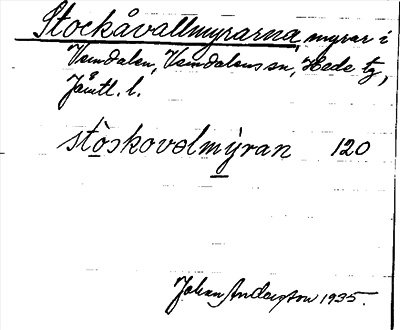 Stockåvallmyrarna, myrar i
Vemdalen, Vemdalens sn, Hede tg,
Jämtl. l.
stòskovəlmýran 120
Johan Anderston 1935.